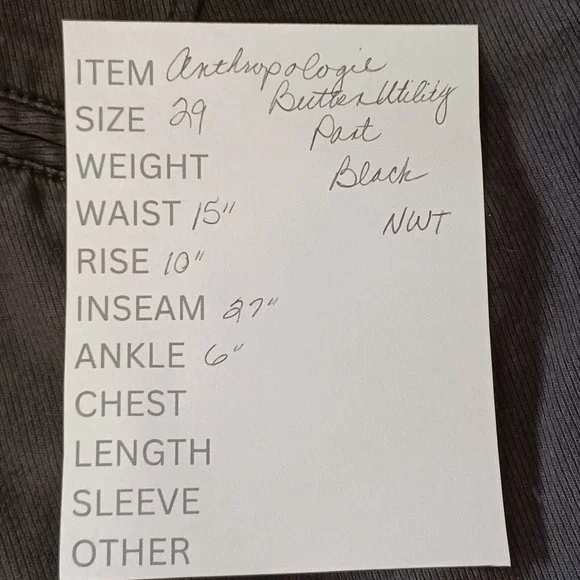 ITEM Anthropologie
Butter Utility
SIZE 29
Pant
WEIGHT
Black
WAIST 15"
NWT
RISE 10"
INSEAM 27"
ANKLE 6"
CHEST
LENGTH
SLEEVE
OTHER